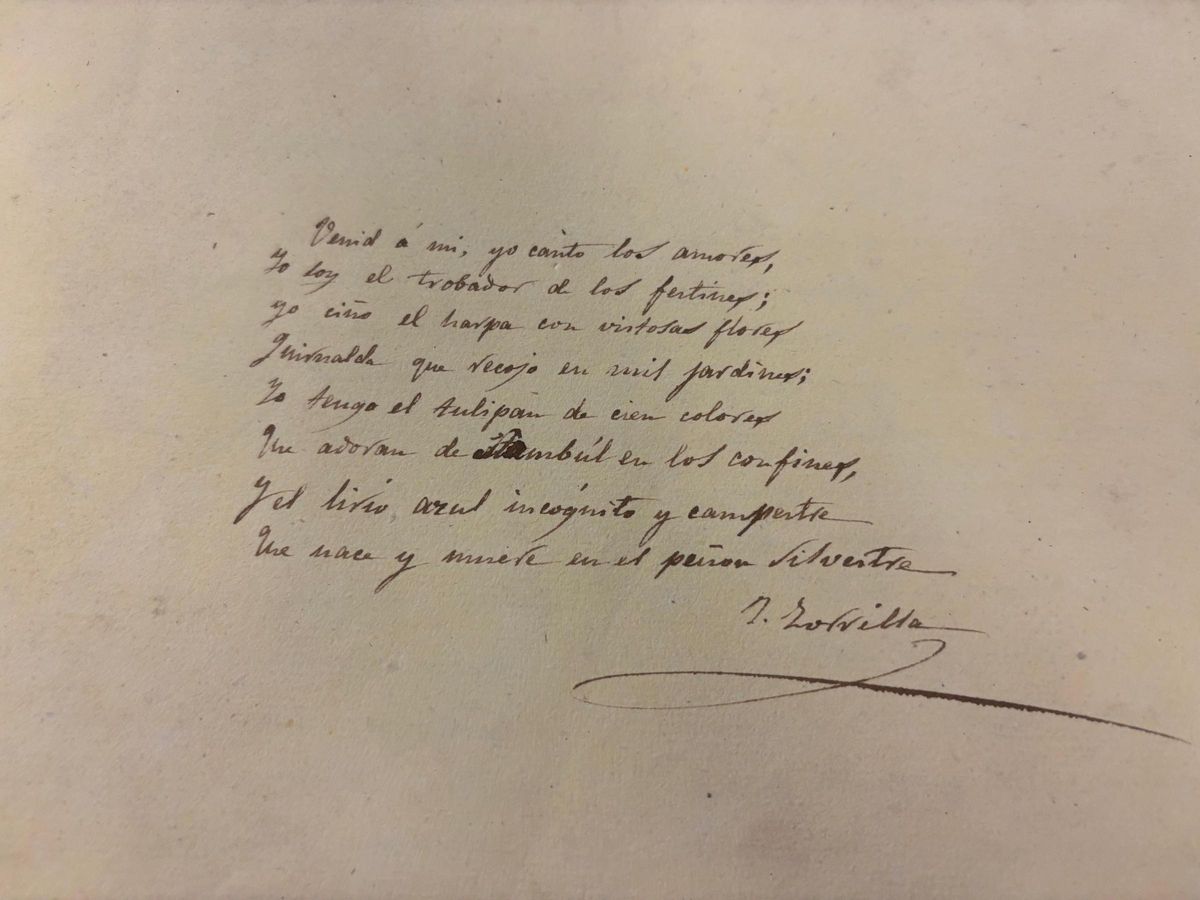 Venid á mi, yo canto los amores,
Yo soy el trobador de los festines;
Yo ciño el harpa con vistosas flores
Guirnalda que recojo en mil jardines;
Yo tengo el tulipán de cien colores
Que adoran de Stambúl en los confines,
Y el lirio azul incógnito y campestre
Que nace y muere en el peñon silvestre
J. Zorrilla